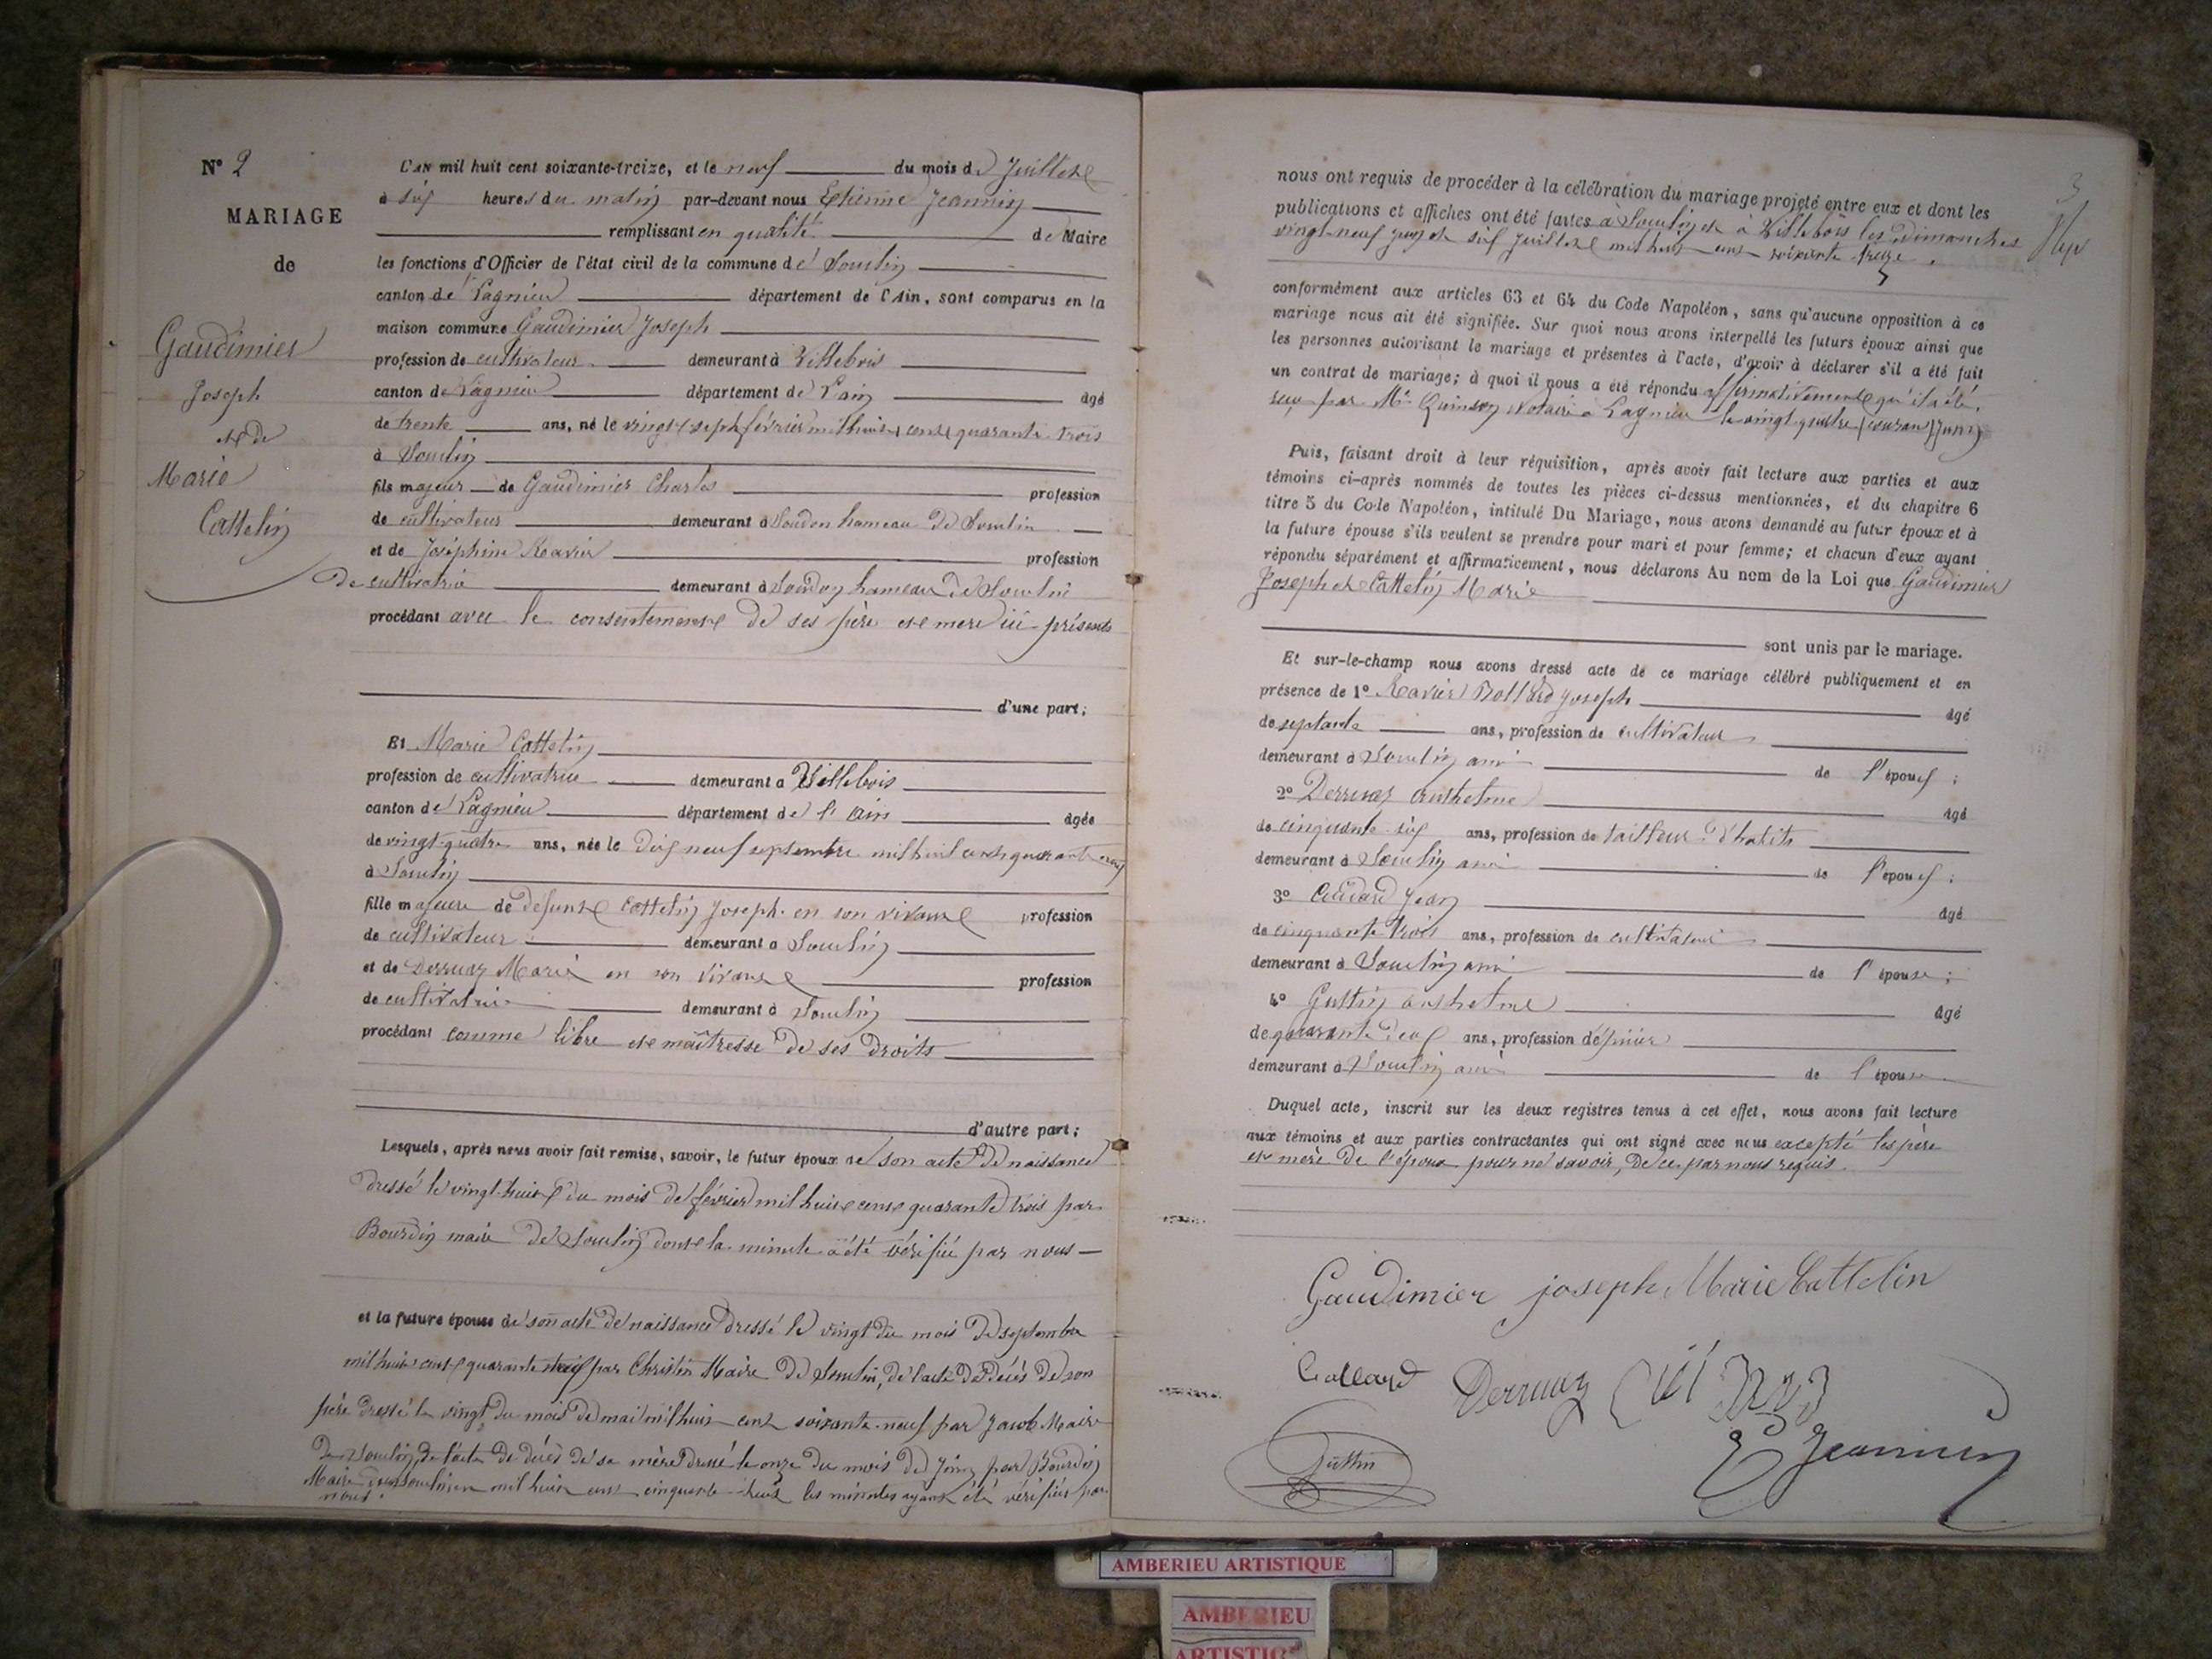 N° 2
MARIAGE
de
Gaudimier
Joseph
et de
Marie
Cattelin
L'AN mil huit cent soixante-treize, et le neuf du mois de Juillet
à six heures du matin par-devant nous Etienne Jeannin
remplissant en qualité de Maire
les fonctions d'Officier de l'état civil de la commune de Souclin
canton de Lagnieu département de l'Ain, sont comparus en la
maison commune Gaudimier Joseph
profession de cultivateur demeurant à Villebois
canton de Lagnieu département de l'ain âgé
de trente ans, né le vingt sept février mil huit cent quarante trois
à Souclin
fils majeur de Gaudimier Charles profession
de cultivateur demeurant à Soudon hameau de Souclin
et de Joséphine Ravier profession
de cultivatrice demeurant à Soudon hameau de Souclin
procédant avec le consentement de ses père et mère ici présents
d'une part;
Et Marie Cattelin
profession de cultivatrice demeurant à Villebois
canton de Lagnieu département de l'ain âgée
de vingt-quatre ans, née le dix neuf septembre mil huit cent quarante neuf
à Souclin
fille majeure de défunt Cattelin Joseph en son vivant profession
de cultivateur demeurant à Souclin
et de Derruaz Marie en son vivant profession
de cultivatrice demeurant à Souclin
procédant comme libre et maîtresse de ses droits
d'autre part;
Lesquels, après nous avoir fait remise, savoir, le futur époux de son acte de naissance
dressé le vingt-huit du mois de février mil huit cent quarante trois par
Bourdin maire de Souclin dont la minute a été vérifiée par nous
et la future épouse de son acte de naissance dressé le vingt du mois de septembre
mil huit cent quarante neuf par Christin Maire de Souclin, de l'acte de décès de son
père dressé le vingt du mois de mai mil huit cent soixante-neuf par Jacob Maire
de Souclin, de l'acte de décès de sa mère dressé le onze du mois de Juin par Bourdin
Maire de Souclin mil huit cent cinquante-huit les minutes ayant été vérifiées par
nous.
3
nous ont requis de procéder à la célébration du mariage projeté entre eux et dont les
publications et affiches ont été faites à Souclin et à Villebois les Dimanches
vingt-neuf juin et six Juillet mil huit cent soixante treize.
conformément aux articles 63 et 64 du Code Napoléon, sans qu'aucune opposition à ce
mariage nous ait été signifiée. Sur quoi nous avons interpellé les futurs époux ainsi que
les personnes autorisant le mariage et présentes à l'acte, d'avoir à déclarer s'il a été fait
un contrat de mariage; à quoi il nous a été répondu affirmativement qu'il a été
reçu par Me Quinson Notaire à Lagnieu le vingt quatre Juin
Puis, faisant droit à leur réquisition, après avoir fait lecture aux parties et aux
témoins ci-après nommés de toutes les pièces ci-dessus mentionnées, et du chapitre 6
titre 5 du Code Napoléon, intitulé Du Mariage, nous avons demandé au futur époux et à
la future épouse s'ils veulent se prendre pour mari et pour femme; et chacun d'eux ayant
répondu séparément et affirmativement, nous déclarons Au nom de la Loi que Gaudimier
Joseph et Cattelin Marie
sont unis par le mariage.
Et sur-le-champ nous avons dressé acte de ce mariage célébré publiquement et en
présence de 1° Ravier Joseph âgé
de septante ans, profession de cultivateur
demeurant à Souclin ami de l'époux;
2° Derruaz Anthelme âgé
de cinquante six ans, profession de tailleur d'habits
demeurant à Souclin ami de l'époux;
3° Jean âgé
de cinquante trois ans, profession de cultivateur
demeurant à Souclin ami de l'épouse;
4° Guttin Anthelme âgé
de quarante deux ans, profession d'épicier
demeurant à Souclin ami de l'épouse
Duquel acte, inscrit sur les deux registres tenus à cet effet, nous avons fait lecture
aux témoins et aux parties contractantes qui ont signé avec nous excepté les père
et mère de l'époux pour ne savoir, de ce par nous requis.
Gaudimier joseph Marie Cattelin
Derruaz
Guttin
E Jeannin
AMBERIEU ARTISTIQUE
AMBERIEU
ARTISTIQ